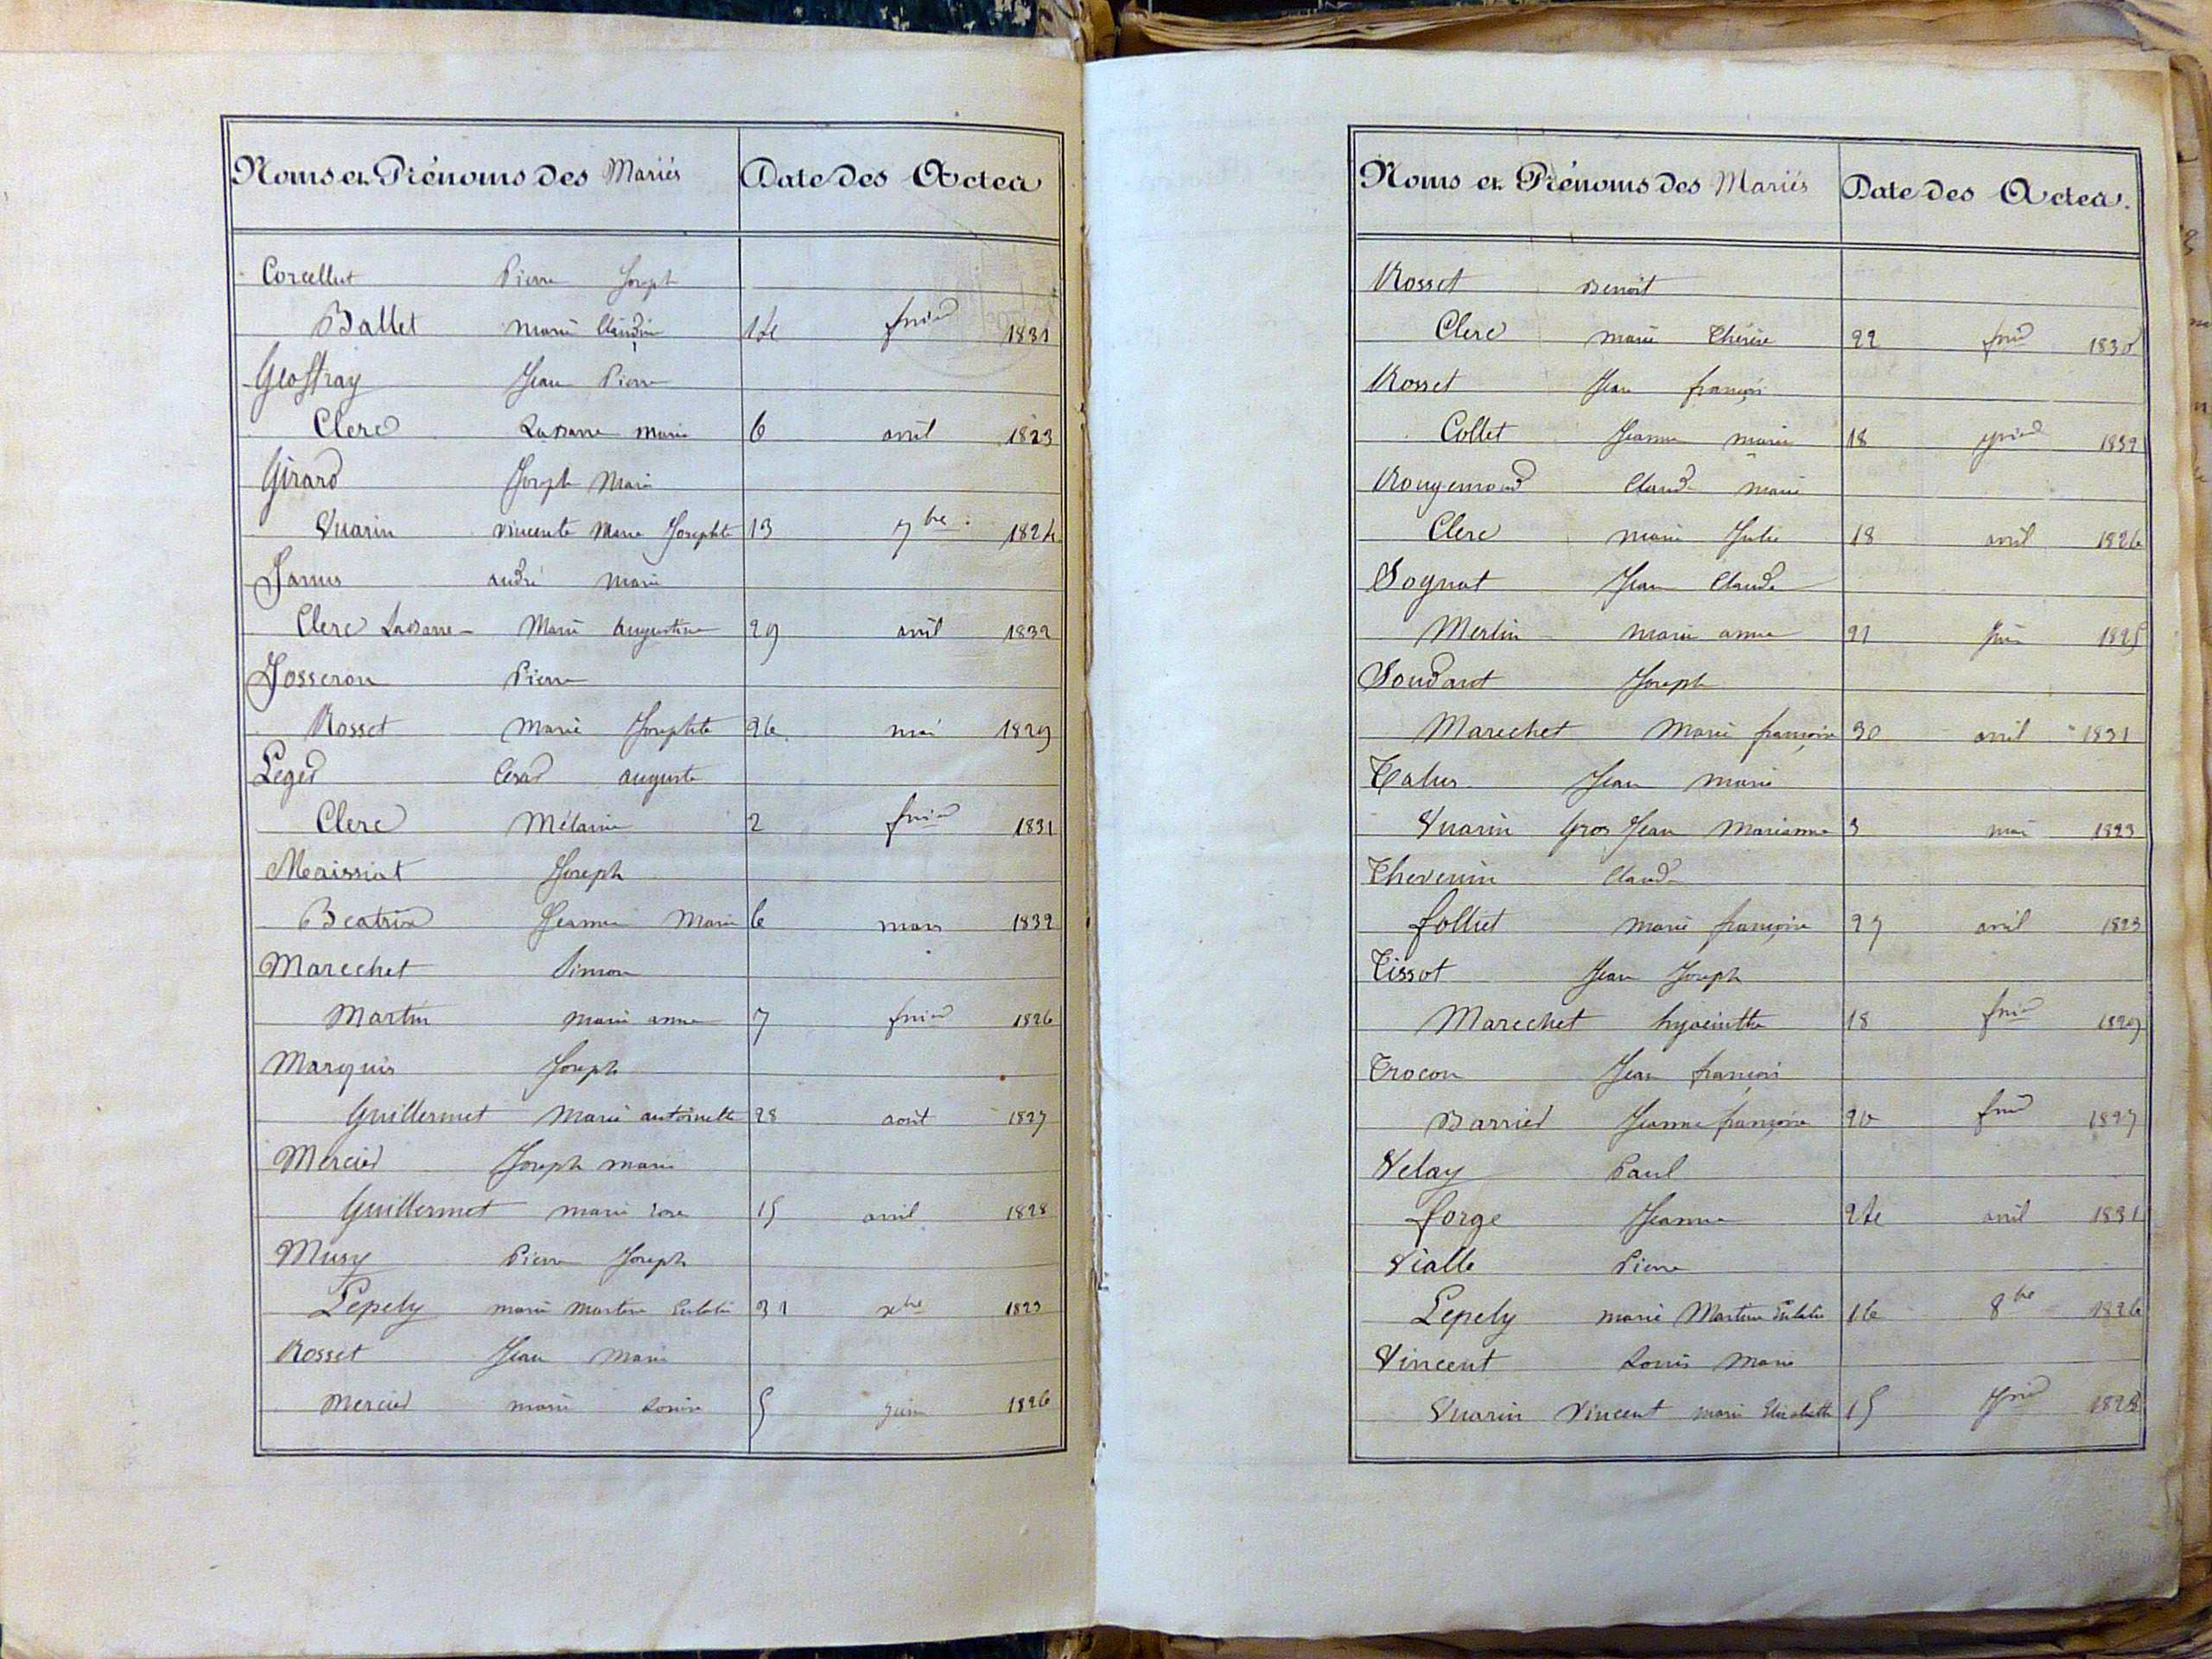 Noms et Prénoms des Mariés Date des Actes
Corcellut Pierre Joseph
Ballet marie Claudine 14 fvrier 1831
Geoffray Jean Pierre
Clerc Labarre marie 6 avril 1823
Girard Joseph Marie
Vuarin Vincente Marie Josephte 13 7bre 1824
Janus andré marie
Clerc Labarre Marie augustine 29 avril 1832
Josseron Pierre
Rosset Marie Josephte 26 mai 1829
Leger Cesar auguste
Clerc Mélanie 2 fvrier 1831
Meissiat Joseph
Beatrix Jeanne Marie 6 mars 1832
Marechet Simon
Martin marie anne 7 fvrier 1826
Marquis Joseph
Guillermet Marie antoinette 28 août 1827
Mercier Joseph marie
Guillermet marie rose 15 avril 1828
Musy Pierre Joseph
Lepely marie Martine Eulalie 31 xbre 1823
Rosset Jean Marie
Mercier marie Louise 5 juin 1826
Noms et Prénoms des Mariés Date des Actes.
Rosset Benoit
Clerc marie Thérèse 22 fvrier 1830
Rosset Jean françois
Collet Jeanne marie 18 1832
Rougemond Claude marie
Clerc marie Julie 18 avril 1826
Sognat Jean Claude
Merlin marie anne 21 Juin 1825
Soudant Joseph
Marechet Marie françoise 30 avril 1831
Talus Jean Marie
Vuarin Gros Jean Marianne 3 mai 1823
Thevenin Claude
folliet marie françoise 27 avril 1823
Tissot Jean Joseph
Marechet hyacinthe 18 fvrier 1829
Trocon Jean françois
Barrier Jeanne françoise 20 fvrier 1827
Velay Paul
forge Jeanne 24 avril 1831
Vialle Pierre
Lepely marie Martine Eulalie 16 8bre 1826
Vincent Louis Marie
Vuarin Vincent marie Elisabeth 15